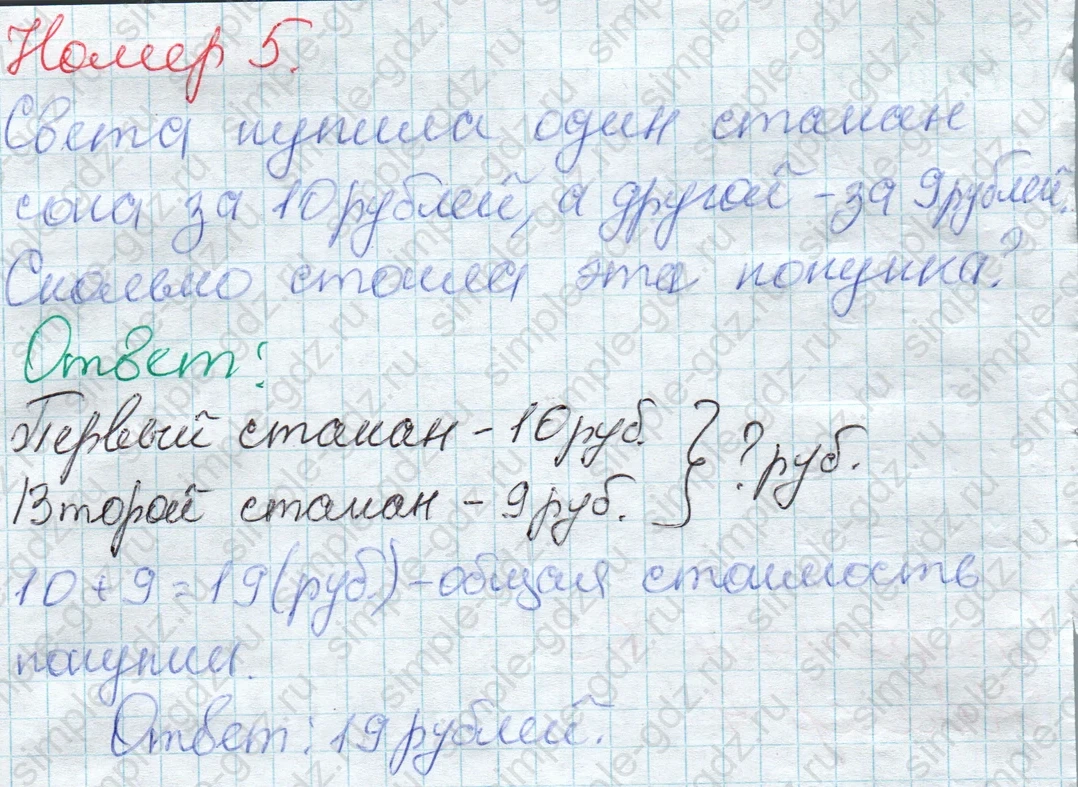 Номер 5.
Света купила один стакан
сока за 10 рублей, а другой - за 9 рублей.
Сколько стоила эта покупка?
Ответ:
Первый стакан - 10 руб.
} ? руб.
Второй стакан - 9 руб.
10 + 9 = 19 (руб.) - общая стоимость
покупки.
Ответ: 19 рублей.
simple-gdz.ru